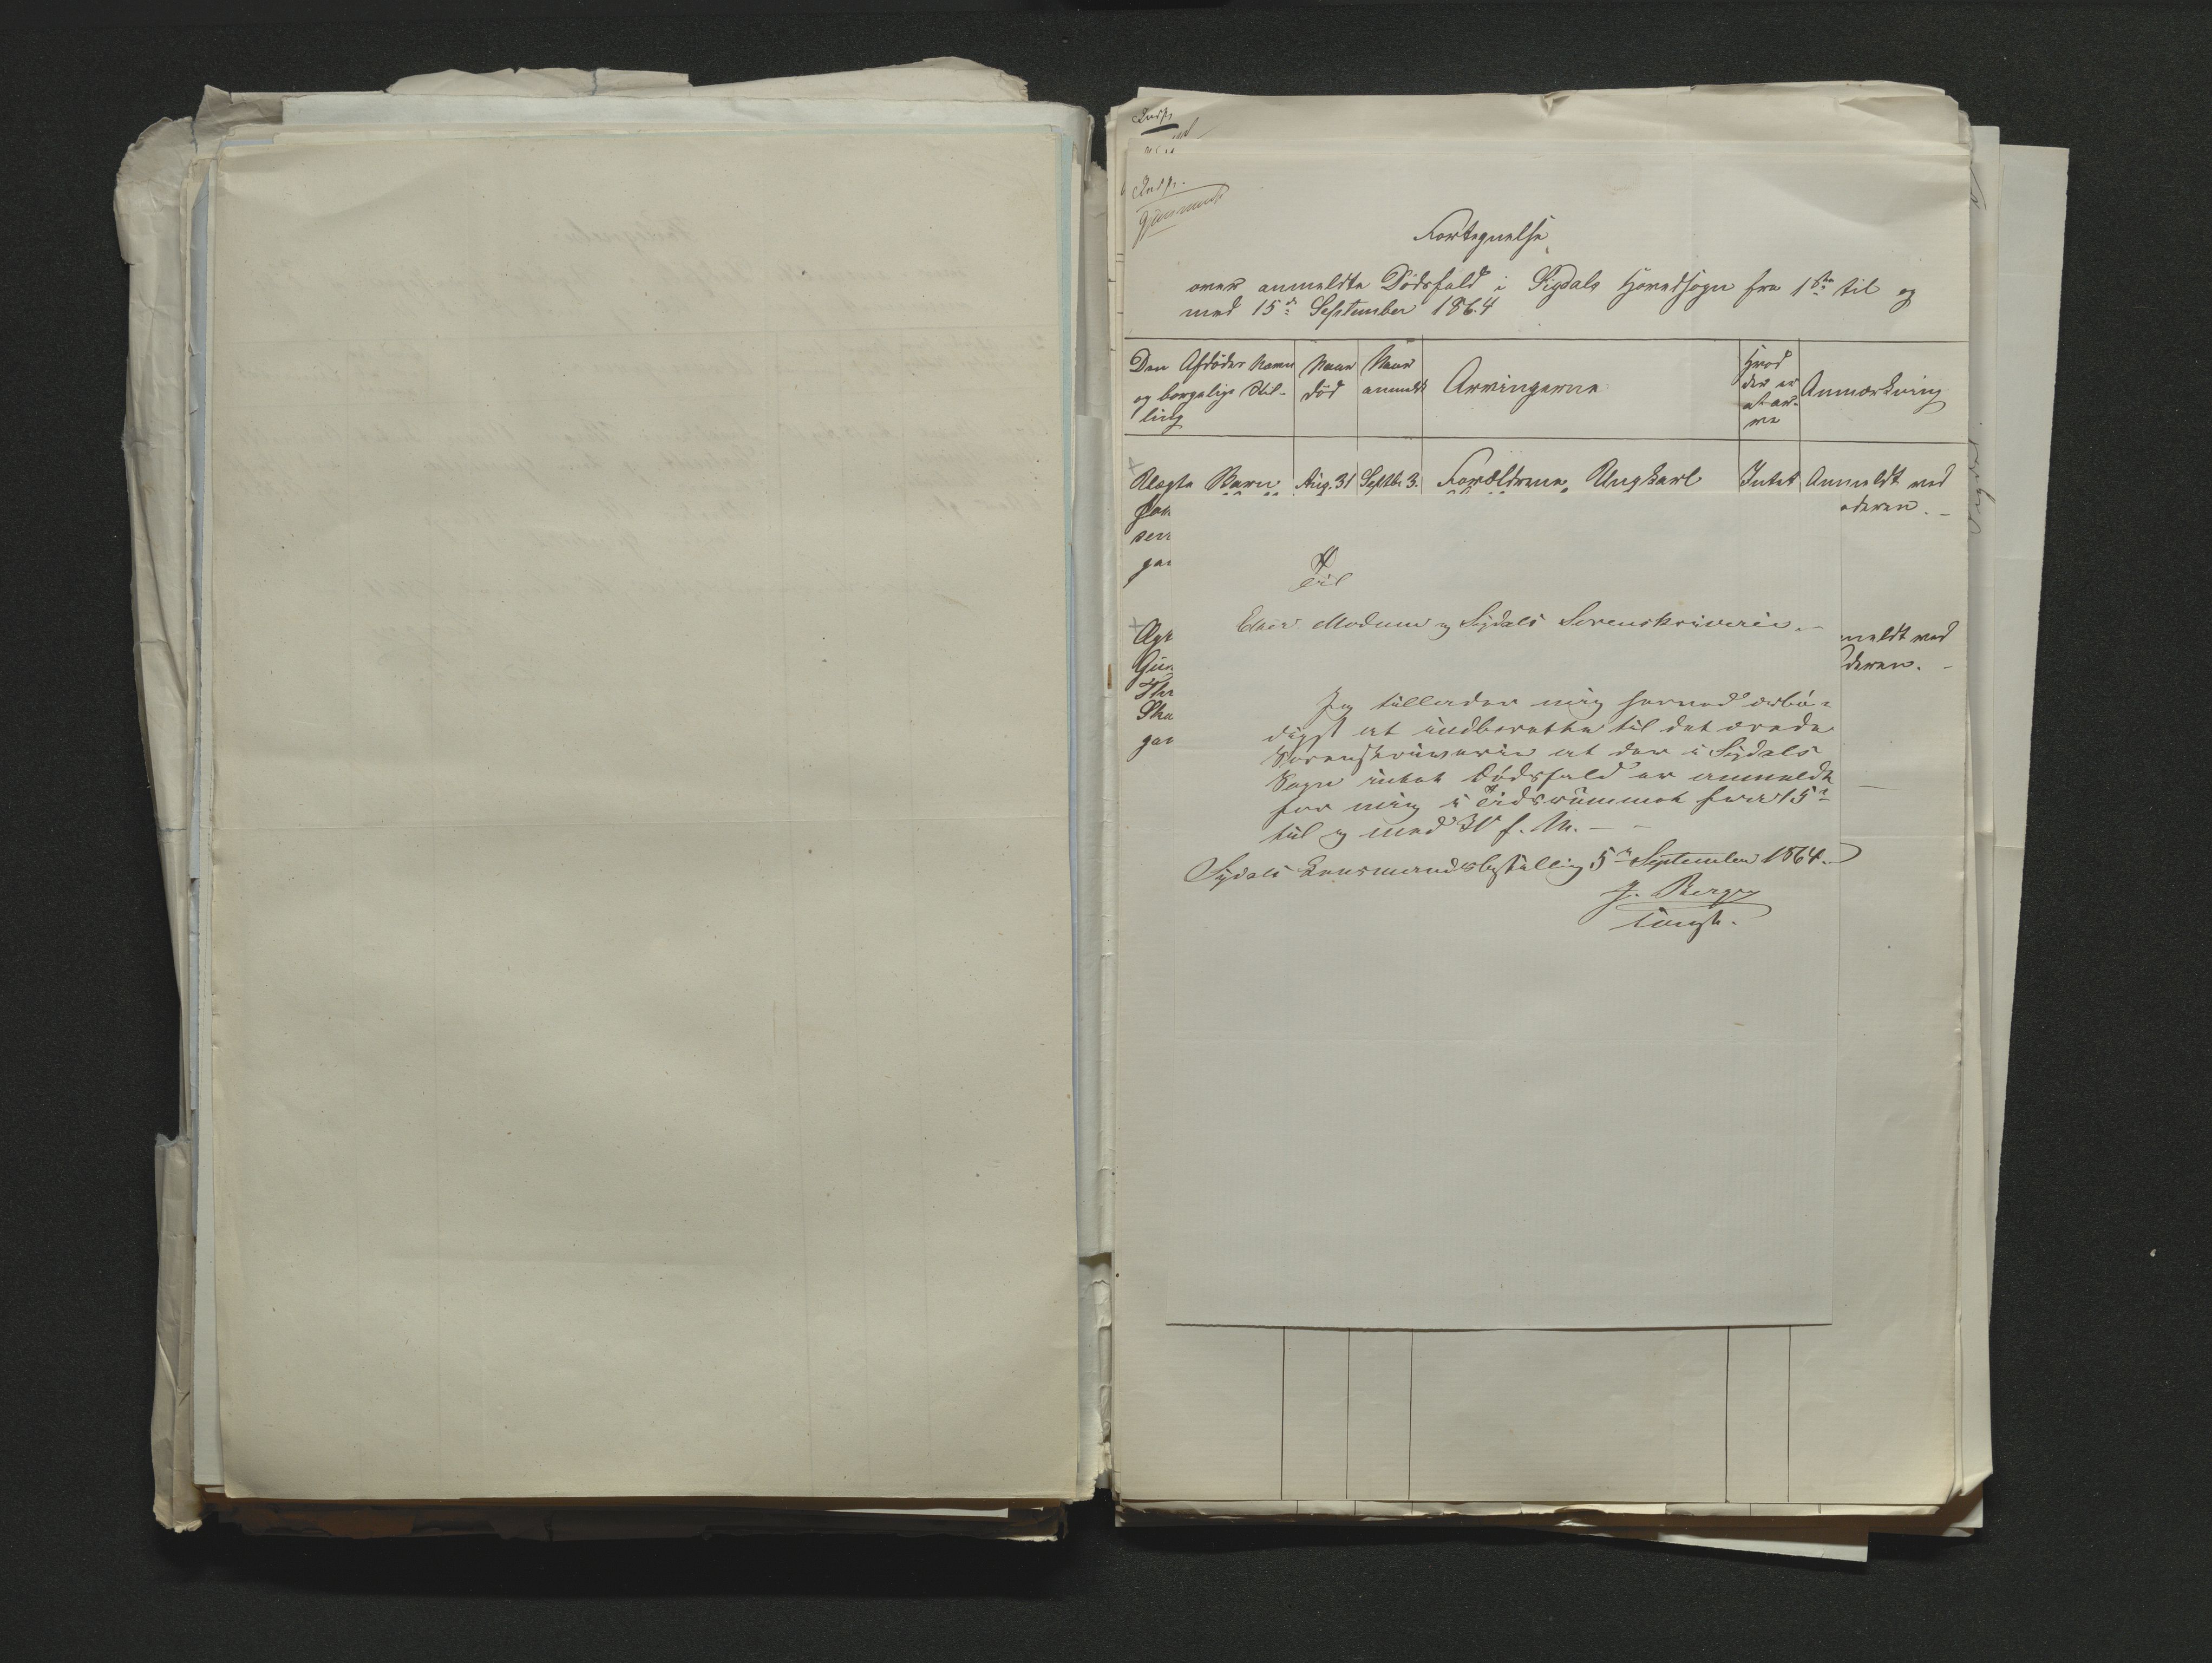 Indf.
Indf.
Gjennemset
Fortegnelse
over anmeldte Dødsfald i Sigdals Hovedsogn fra 1ste til og
med 15de September 1864
Den Afdødes Navn
og borgelige Stil-
ling
Naar
død
Naar
anmeldt
Arvingerne
Hvad
der er
at ar-
ve
Anmærkning
Uægte Barn
Aug. 31
Septbr 3.
Forældrene, Ungkarl
Intet
Anmeldt ved
oderen. -
sen
gaa
Til
Eker Modum og Sigdals Sorenskriverie. -
Gun
Ska
gaa
meldt ved
deren. -
Jeg tillader mig herved ærbø-
digst at indberette til det ærede
Sorenskriverie at der i Sigdals
Sogn intet Dødsfald er anmeldt
for mig i Tidsrummet fra 15de
til og med 31 f. M. -
Sigdals Lensmandsbestilling 5te September 1864. -
J. Berg
const.